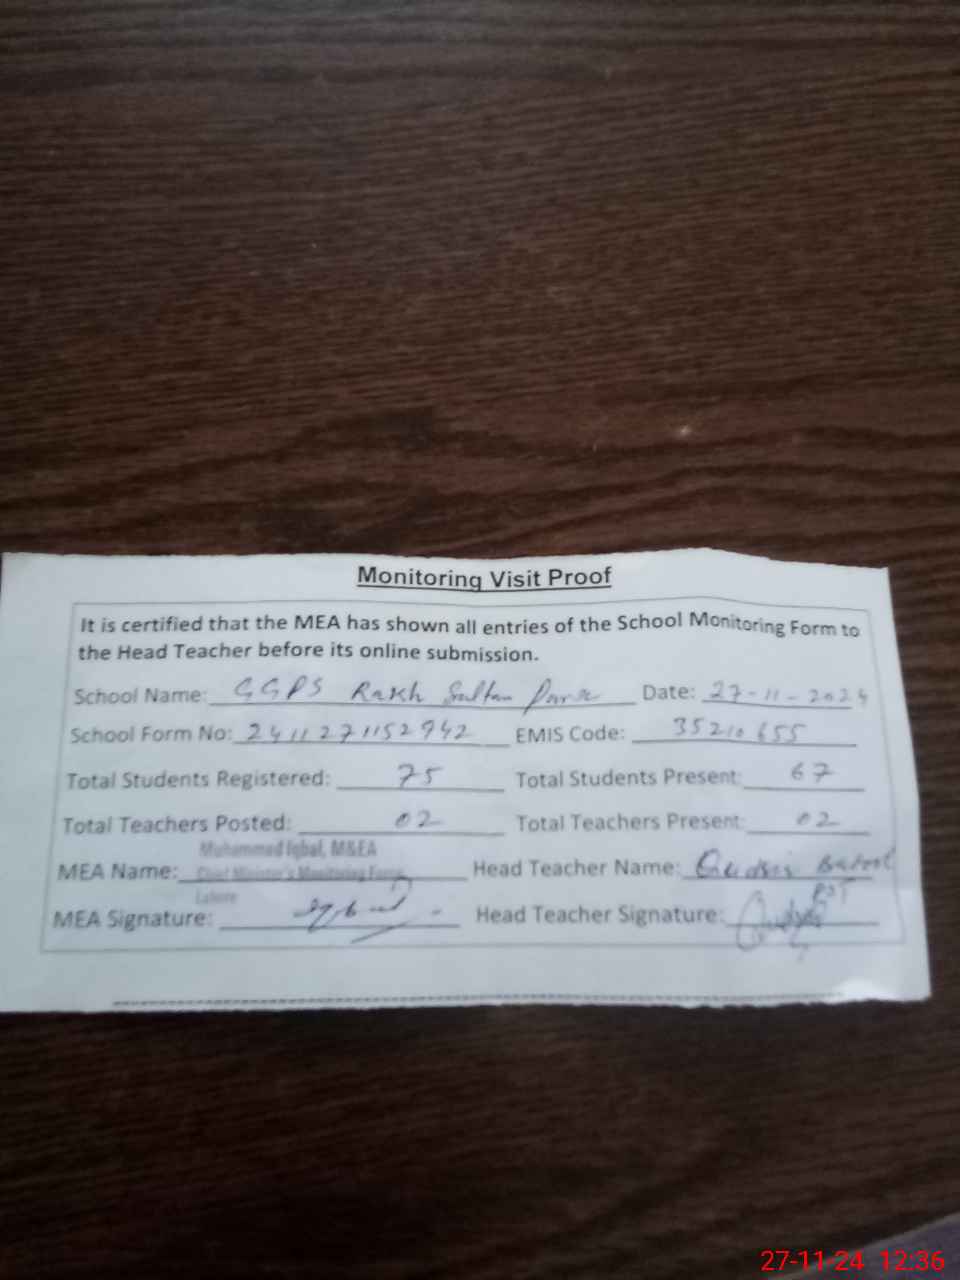 Monitoring Visit Proof
It is certified that the MEA has shown all entries of the School Monitoring Form to
the Head Teacher before its online submission.
School Name: GGPS Rakh Sultan Date: 27-11-2024
School Form No: 2411271152942 EMIS Code: 35210655
Total Students Registered: 75 Total Students Present: 67
Total Teachers Posted: 02 Total Teachers Present: 02
Muhammad Iqbal, M&EA
MEA Name: Chief Minister's Monitoring Force Head Teacher Name: Batool
Lahore
MEA Signature: Head Teacher Signature: PST
27-11-24 12:36